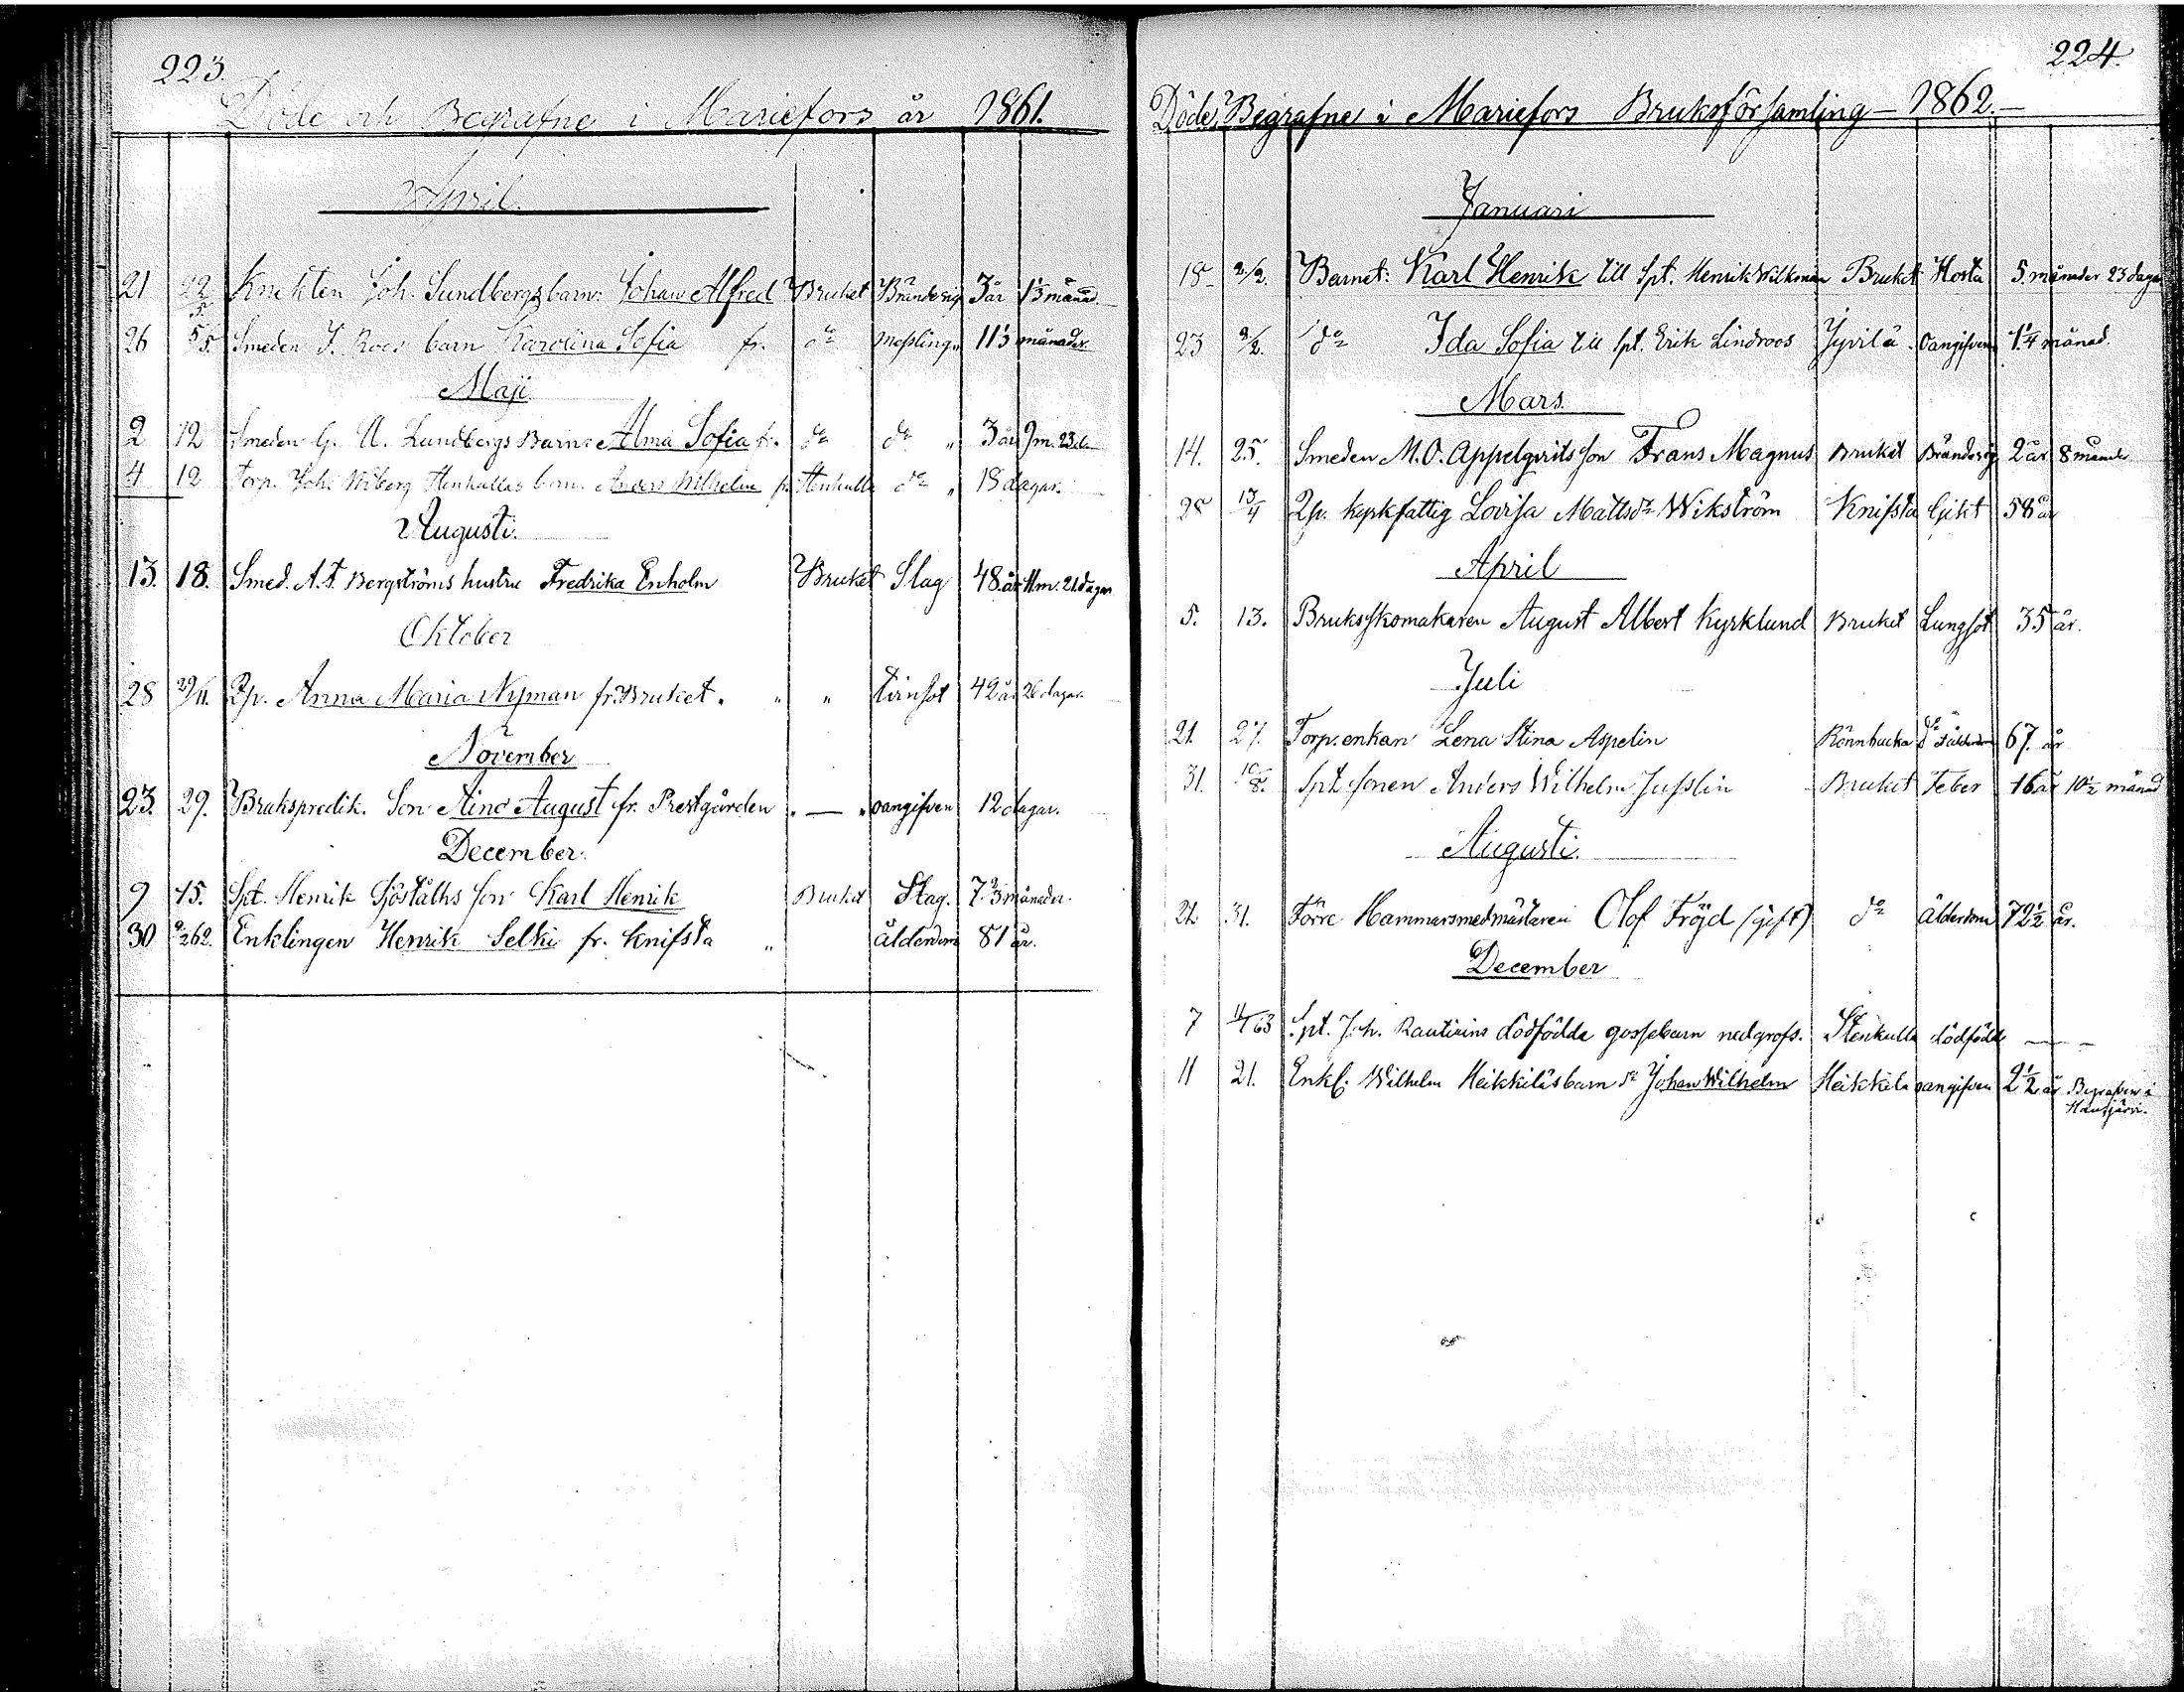 223.
Döde och Begrafne i Mariefors år 1861.
April.
21 22/5 Knekten Joh. Sundbergs barn: Johan Alfred Bruket Brändesig 3 år 1 1/3 månad.
26 5/5 Smeden J. Roos barn Karolina Sofia fr. do Messling 11 1/3 månader.
Maji
2 12 Smeden G. A. Lundbergs Barn: Alma Sofia fr. do do " 3 år 9 m. 23 d.
4 12 Torp. Joh. Wiberg Stenkullas barn Anders Wilhelm fr. Stenkulla do " 18 dagar.
Augusti.
13. 18. Smed. A. F. Bergströms hustru Fredrika Enholm Bruket Slag 48 år 11 m. 21 dagar
Oktober
28 29/11. Pp. Anna Maria Nyman fr. Bruket. " " tvinsot 42 år 26 dagar.
November
23. 29. Brukspredik. Son Aino August fr. Prestgården " — " oangifven 12 dagar.
December.
9 15. Spt. Henrik Sjöståhls son Karl Henrik Bruket Slag. 7 2/3 månader.
30 9/2 62. Enklingen Henrik Selki fr. Knifsta " ålderdom 81 år.
224.
Döde, Begrafne i Mariefors Bruksförsamling — 1862. —
Januari
18 2/2. Barnet: Karl Henrik till Spt. Henrik Wilkman Bruket Hosta 5. månader 23 dagar
23 2/2. do Ida Sofia till Spt. Erik Lindroos Jyvilä oangifven 1 1/4 månad.
Mars.
14. 25. Smeden M. O. Appelqvists son Frans Magnus Bruket Brändesig 2 år 8 månader
28 13/4 Pp. kyrkfattig Lovisa Mattsdr Wikström Knifsta Gikt 58 år
April
5. 13. Bruksskomakaren August Albert Kyrklund Bruket Lungsot 35 år.
Juli
21. 27. Torp. enkan Lena Stina Aspelin Rönnbacka 67. år
31. 10/8. Spt. sonen Anders Wilhelm Jusslin Bruket Feber 16 år 10 1/2 månad
Augusti.
21. 31. Förre Hammarsmedmästaren Olof Fröjd (gift) do ålderdom 72 1/2 år.
December
7 11/1 63 Spt. Joh. Rautirins dödfödda gossebarn nedgrofs. Stenkulla dödfödd — —
11 21. Enkl. Wilhelm Heikkiläs barn Johan Wilhelm Heikkilä oangifven 2 1/2 år Begrafven i
Hausjärvi.